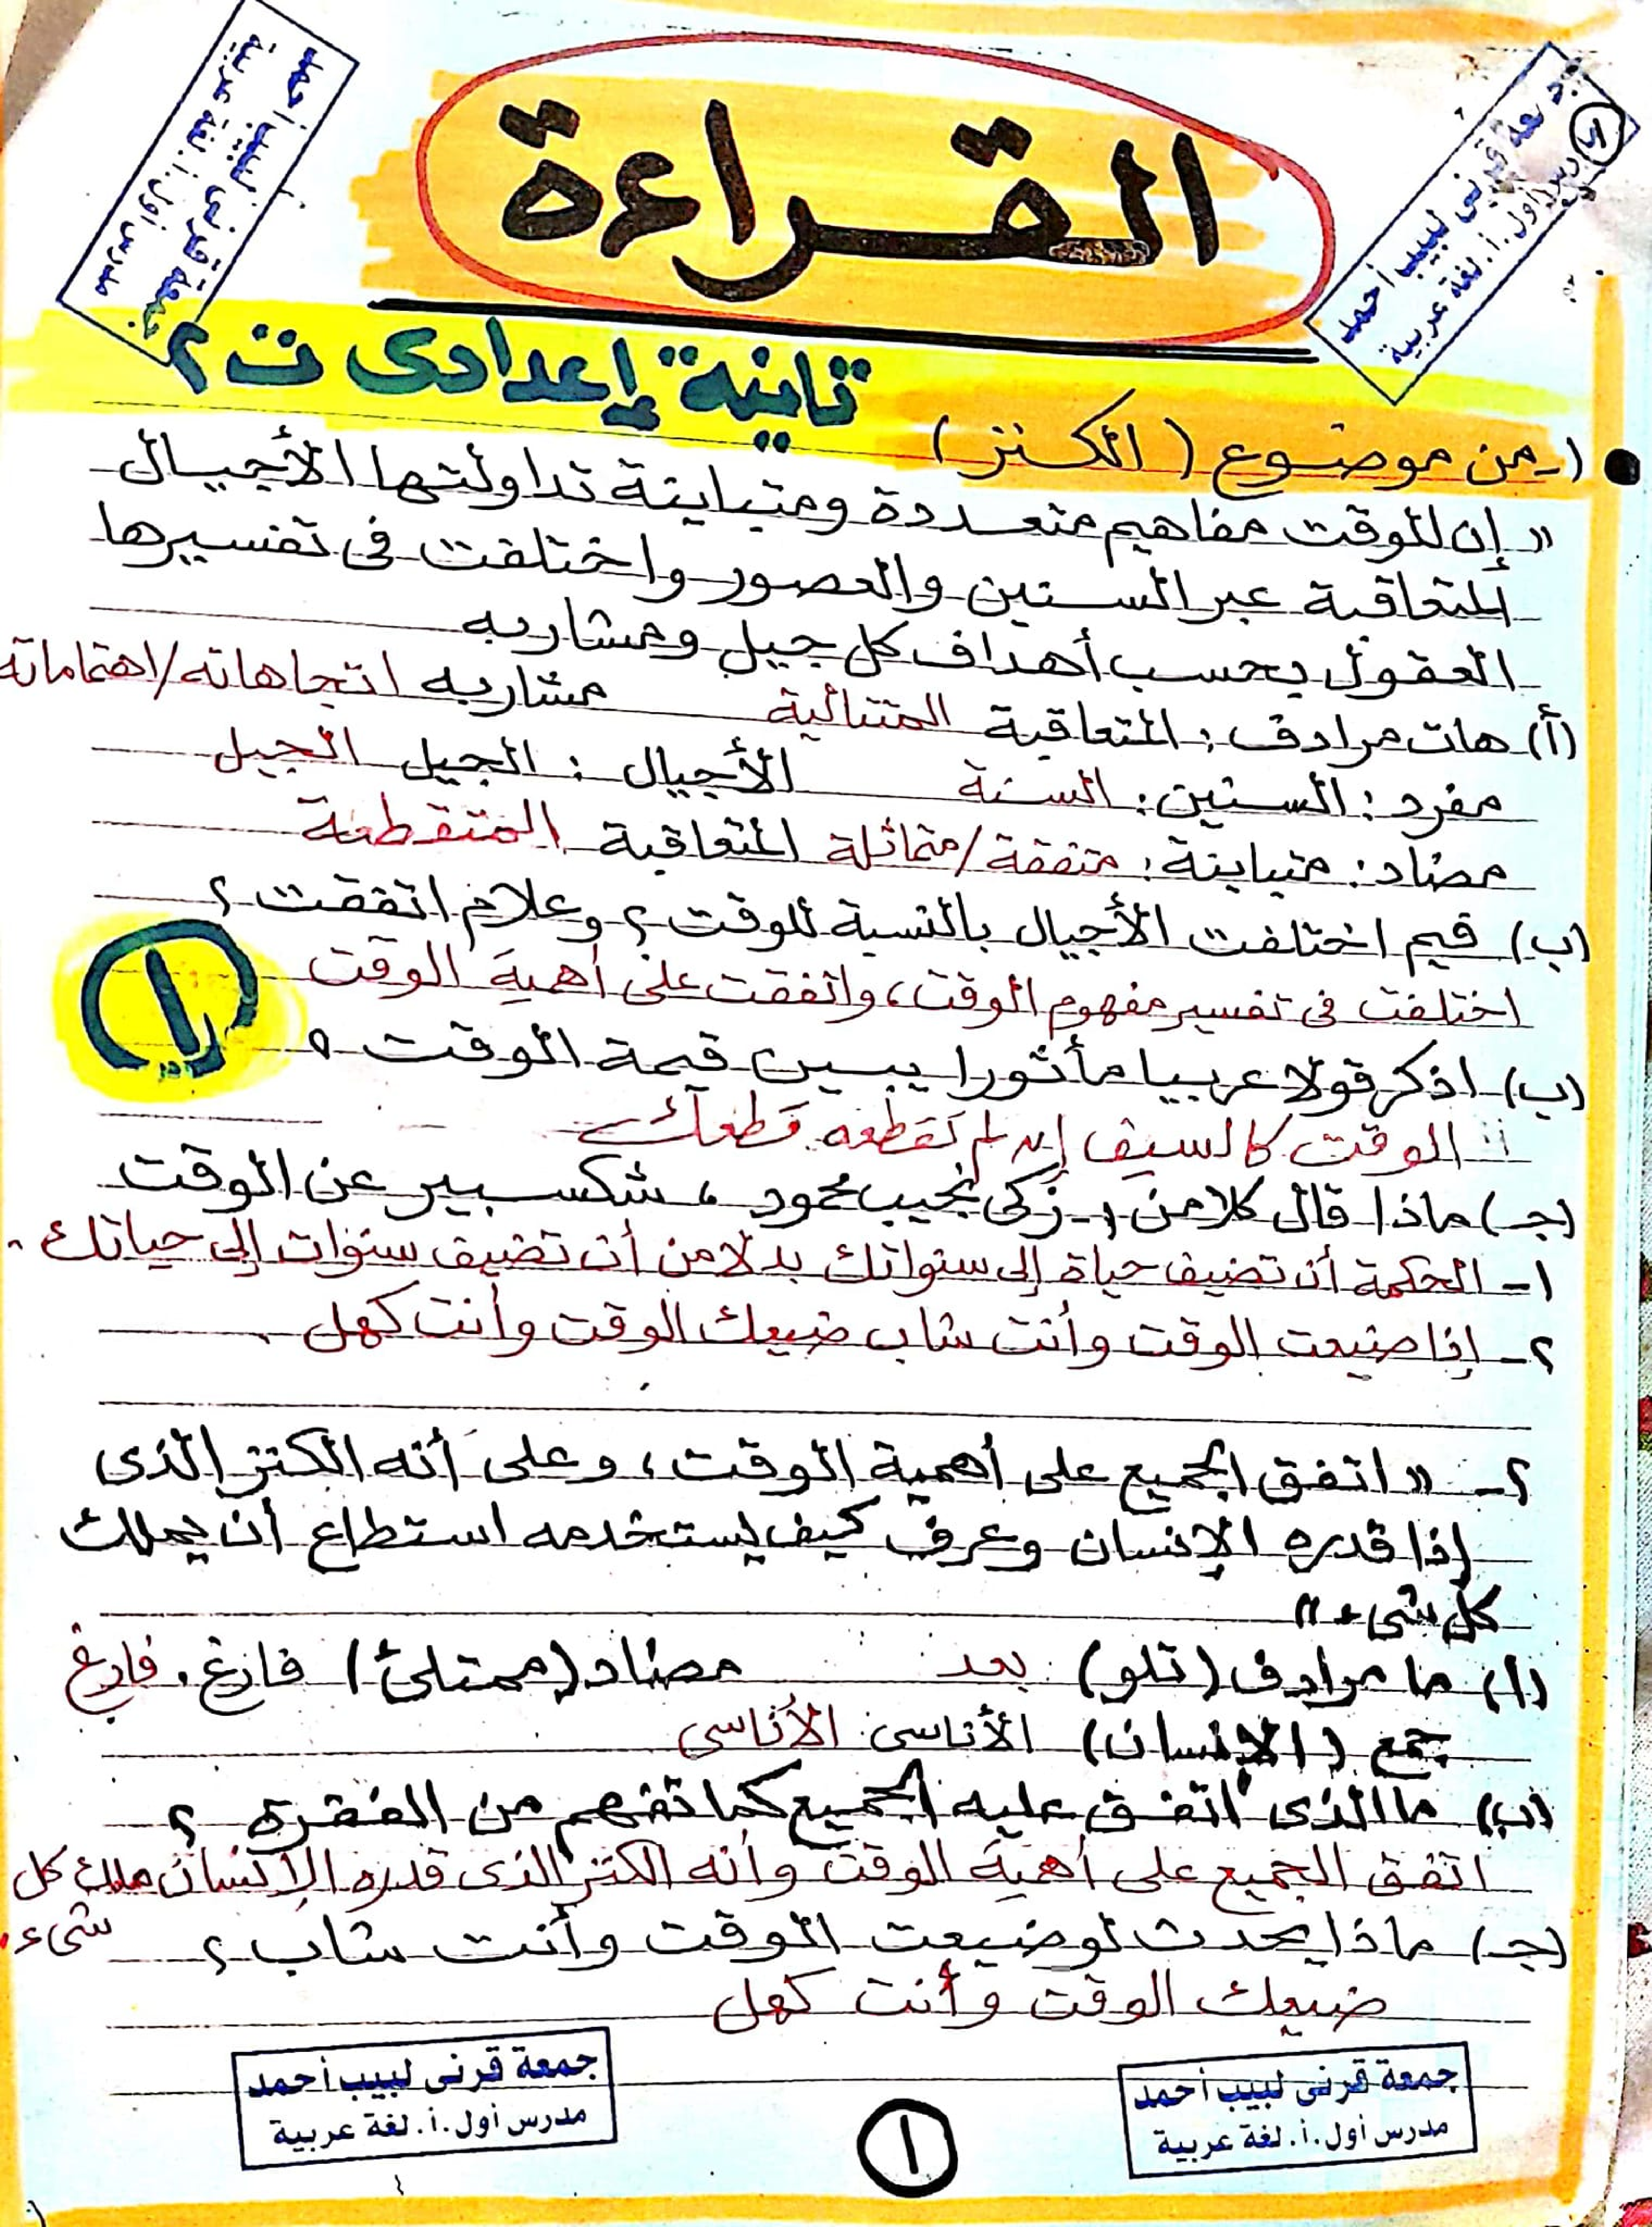 جمعة قرنى لبيب أحمد
مدرس أول.أ. لغة عربية
جمعة قرنى لبيب أحمد
مدرس أول.أ. لغة عربية
القراءة
تانية إعدادى ت٢
١- من موضوع (الكنز)
" إن للوقت مفاهيم متعددة ومتباينة تداولتها الأجيال
المتعاقبة عبر السنين والعصور واختلفت فى تفسيرها
العقول بحسب أهداف كل جيل ومشاربه
(أ) هات مرادف: المتعاقبة المتتالية مشاربه اتجاهاته/اهتماماته
مفرد: السنين: السنة الأجيال: الجيل الجيل
مضاد: متباينة: متفقة/متماثلة المتعاقبة المتقطعة
(ب) فيم اختلفت الأجيال بالنسبة للوقت؟ وعلام اتفقت؟
اختلفت فى تفسير مفهوم الوقت، واتفقت على أهمية الوقت
١
(ب) اذكر قولا عربيا مأثورا يبين قيمة الوقت ٥
الوقت كالسيف إن لم تقطعه قطعك
(جـ) ماذا قال كلا من :- زكى نجيب محمود ، شكسبير عن الوقت
١- الحكمة أن تضيف حياة إلى سنواتك بدلا من أن تضيف سنوات إلى حياتك.
٢- إذا ضيعت الوقت وأنت شاب ضيعك الوقت وأنت كهل.
٢- " اتفق الجميع على أهمية الوقت، وعلى أنه الكنز الذى
إذا قدره الإنسان وعرف كيف يستخدمه استطاع أن يملك
كل شىء "
(أ) ما مرادف (تلو) بعد مضاد (ممتلئ) فارغ. فارغ
جمع (الإنسان) الأناسى الأناسى
(ب) ما الذى اتفق عليه الجميع كما تفهم من الفقرة ؟
اتفق الجميع على أهمية الوقت وأنه الكنز الذى قدره الإنسان ملك كل
شىء.
(جـ) ماذا يحدث لو ضيعت الوقت وأنت شاب؟
ضيعك الوقت وأنت كهل
جمعة قرنى لبيب أحمد
مدرس أول.أ. لغة عربية
١
جمعة قرنى لبيب أحمد
مدرس أول.أ. لغة عربية